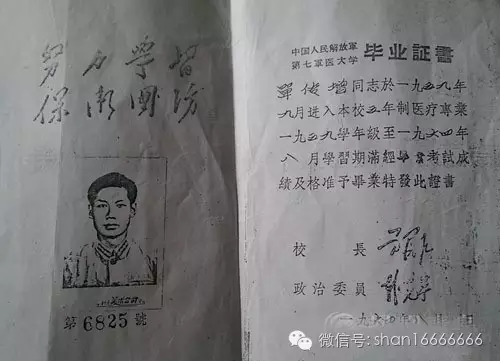 努力学习
保衛国防
第6825號
中国人民解放軍
第七軍医大学 毕业証書
單传增同志於一九五九年
九月进入本校五年制医疗專業
一九五九學年級至一九六四年
八月學習期滿經畢業考試成
績及格准予畢業特發此證書
校長
政治委員
一九六四年八月
微信号: shan16666666